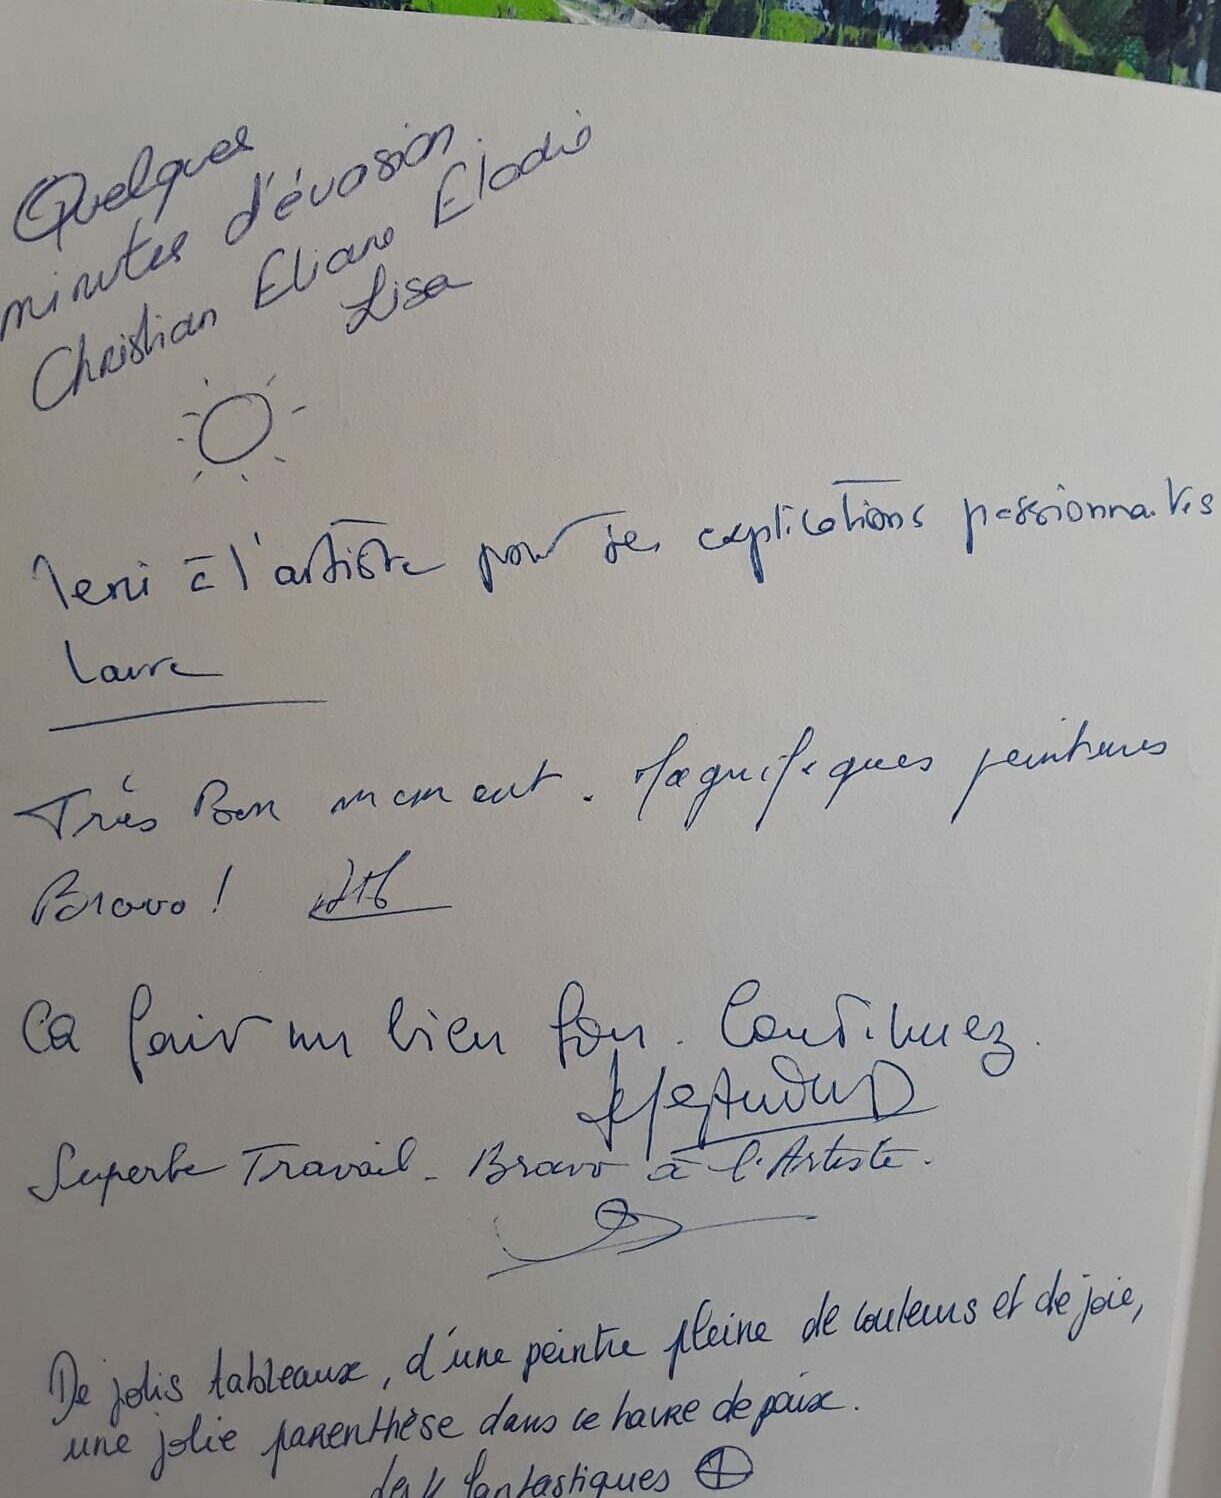 Quelques
minutes d'évasion.
Christian Eliane Elodie
Lisa
Merci à l'artiste pour ses explications passionnantes
Laure
Très Bon moment. Magnifiques peintures
Bravo !
Ca fait un bien fou. Continuez.
Superbe Travail - Bravo à l'Artiste.
De jolis tableaux, d'une peintre pleine de couleurs et de joie,
une jolie parenthèse dans ce havre de paix.
les 4 fantastiques